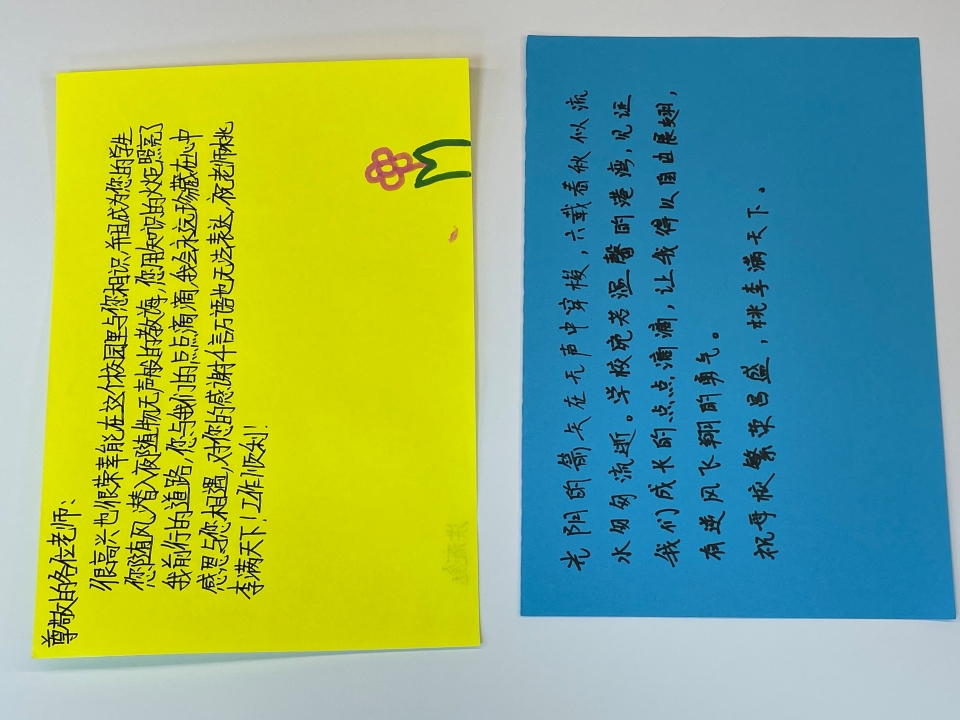 尊敬的各位老师：
很高兴也很荣幸能在这个校园里与您相识，并且成为您的学生
您随风潜入夜随物无声般的教诲，您用知识的火炬照亮了
我前行的道路，您与我们的点点滴滴，我会永远珍藏在心中
感恩与您相遇，对您的感谢千言万语也无法表达，祝老师桃
李满天下！工作顺利！
光阴的箭矢在无声中穿梭，六载春秋似流
水匆匆流逝。学校宛若温馨的港湾，见证
我们成长的点点滴滴，让我得以自由展翅，
有逆风飞翔的勇气。
祝母校繁荣昌盛，桃李满天下。